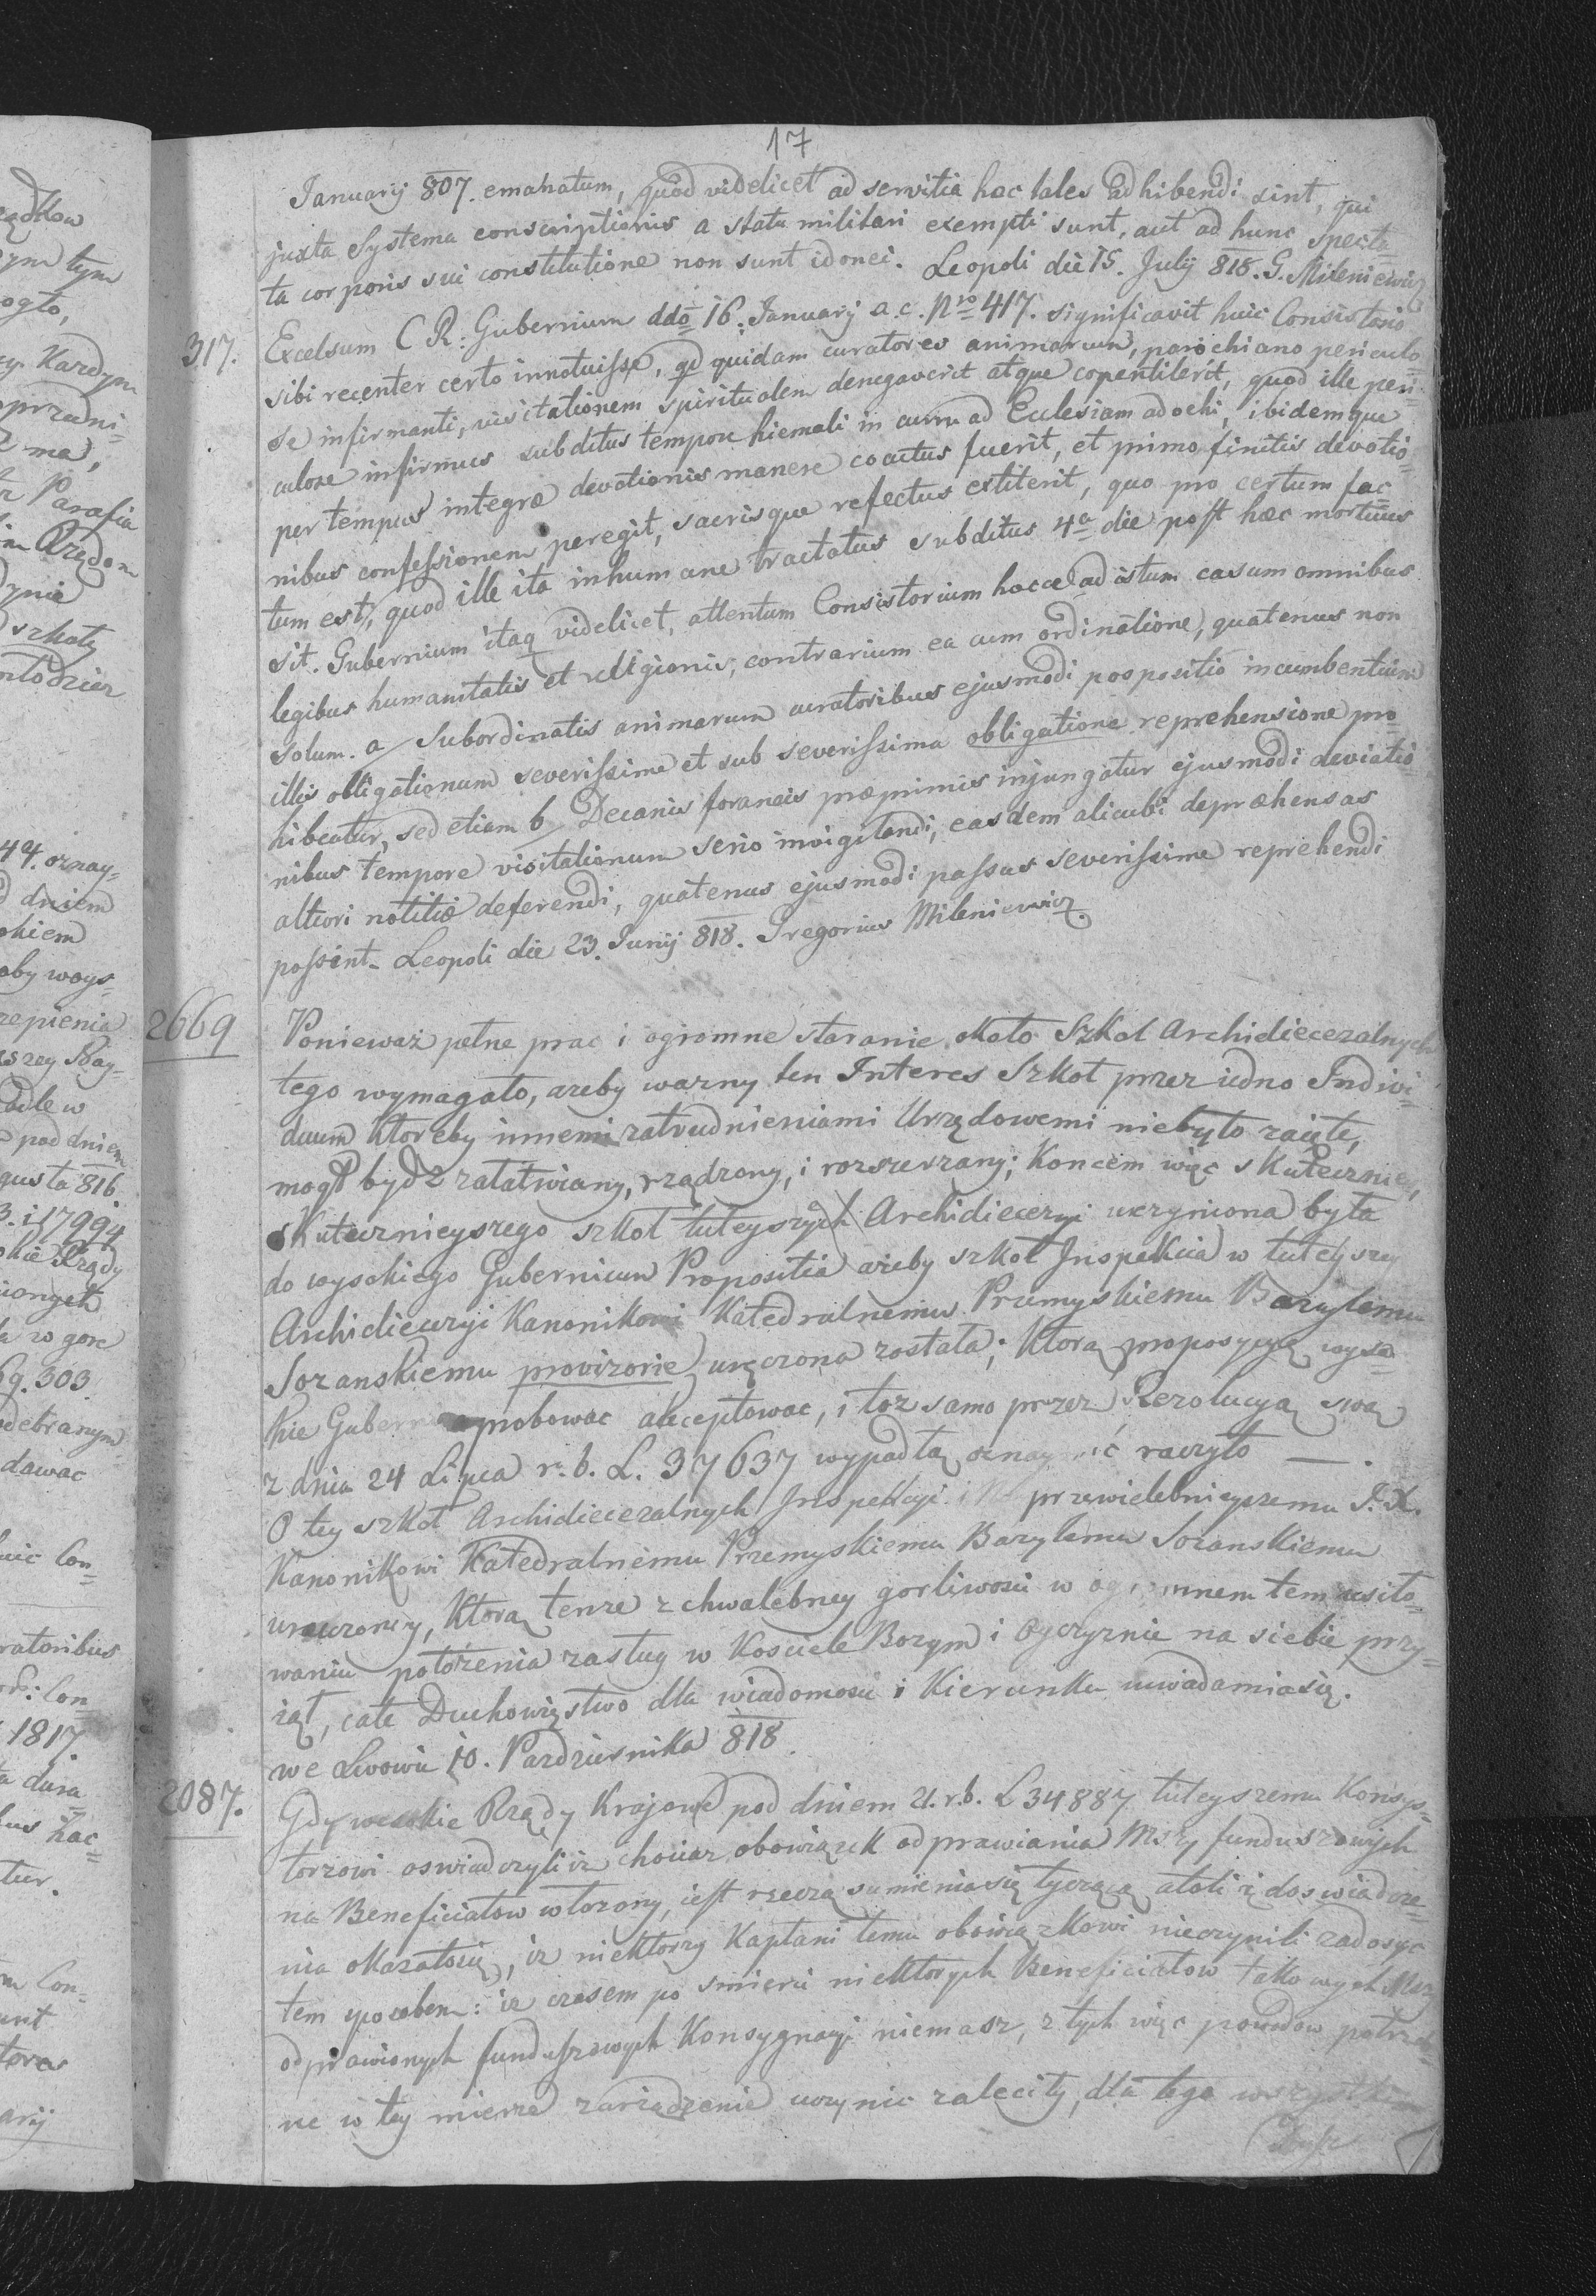 17
Januarij 807. emanatum, quod videlicet ad servitia haec tales adhibendi sint, qui
juxta Systema conscriptionis a statu militari exempti sunt, aut ad hunc specta
ta corporis sui constitutione non sunt idonei. Leopoli die 15. Julij 818. G. Mileniewicz
317. Excelsum C R: Gubernium ddo 16. Januarij a.c. Nro 417. significavit huic Consistorio
sibi recenter certo innotuisse, qd quidam curatores animarum, parochiano periculo
se infirmanti, visitationem spiritualem denegaverit atque copentilerit, quod ille peri=
culose infirmus subditus tempore hiemali in curru ad Ecclesiam advehi, ibidemque
per tempus integrae devotionis manere coactus fuerit, et primo finitis devotio=
nibus confessionem peregit, sacrisque refectus extiterit, quo pro certum fac=
tum est, quod ille ita inhumane tractatus subditus 4a die post haec mortuus
sit. Gubernium itaq videlicet, attentum Consistorium hocce ad istum casum omnibus
legibus humanitatis et religionis, contrarium ea cum ordinatione, quatenus non
solum. a/ Subordinatis animarum curatoribus ejusmodi pospositio incumbentium
illis obligationum severissime et sub severissima obligatione reprehensione pro=
hibeatur, sed etiam b/ Decanis foraneis praeprimis injungatur ejusmodi deviatio=
nibus tempore visitationum serio invigilandi, easdem alicubi depraehensas
altiori notitiae deferendi, quatenus ejusmodi passus severissime reprehendi
possint. Leopoli die 23. Junij 818. Gregorius Mileniewicz.
2669 Poniewaz pełne prac i ogromne staranie około Szkol Archidiecezalnych
tego wymagało, azeby wazny ten Interes Szkoł przez iedno Indiwi=
duum ktoreby innemi zatrudnieniami Urzędowemi niebyło zaięte,
mogł bydz załatwiany, rządzony, i rozszerzany; Koncem więc skuteczniey,
skutecznieyszego szkoł tuteyszych Archidiecezyi uczyniona była
do wysokiego Gubernium Propositia ażeby szkoł Inspekcia w tuteyszey
Archidiecezyi Kanonikowi Katedralnemu Przemyskiemu Bazylemu
Sozanskiemu provizorie uręczona została; Ktorą propozycyą wyso=
kie Gubern aprobowac akceptowac, i toz samo przez Rezolucyą swą
z dnia 24 Lipca r. b. L. 37637 wypadłą oznaymić raczyło —.
O tey szkoł Archidiecezalnych Inspekcyi przewielebnieyszemu J. X.
Kanonikowi Katedralnemu Przemyskiemu Bazylemu Sozanskiemu
uręczoney, Ktorą tenze z chwalebney gorliwosci w ogromnem tem usiło=
waniu połozenia zasług w Kosciele Bozym i Oyczyznie na siebie przy=
iął, całe Duchowięstwo dla wiadomosci i Kierunku uwiadamia się.
we Lwowie 10. Pazdziernika 818
2087. Gdy wszelkie Rządy Krajowe pod dniem 21. r. b. L 34887 tuteyszemu Konsys=
torzowi oswiadczyli iz chociaz obowiązek odprawiania Mszy funduszowych
na Beneficiatow włozony, iest rzeczą sumienia się tyczącą atoli z doswiadcze=
nia okazałosię, iz niektorzy Kapłani temu obowiązkowi nieczynili zadosyc
tem sposobem: iz czasem po smierci niektorych Beneficiatow takowych Mszy
odprawionych funduszowych Konsygnacyi niemasz, z tych więc powodow potrzeb=
ne w tey mierze zarządzenie uczynic zalecily, dla tego wszystkim